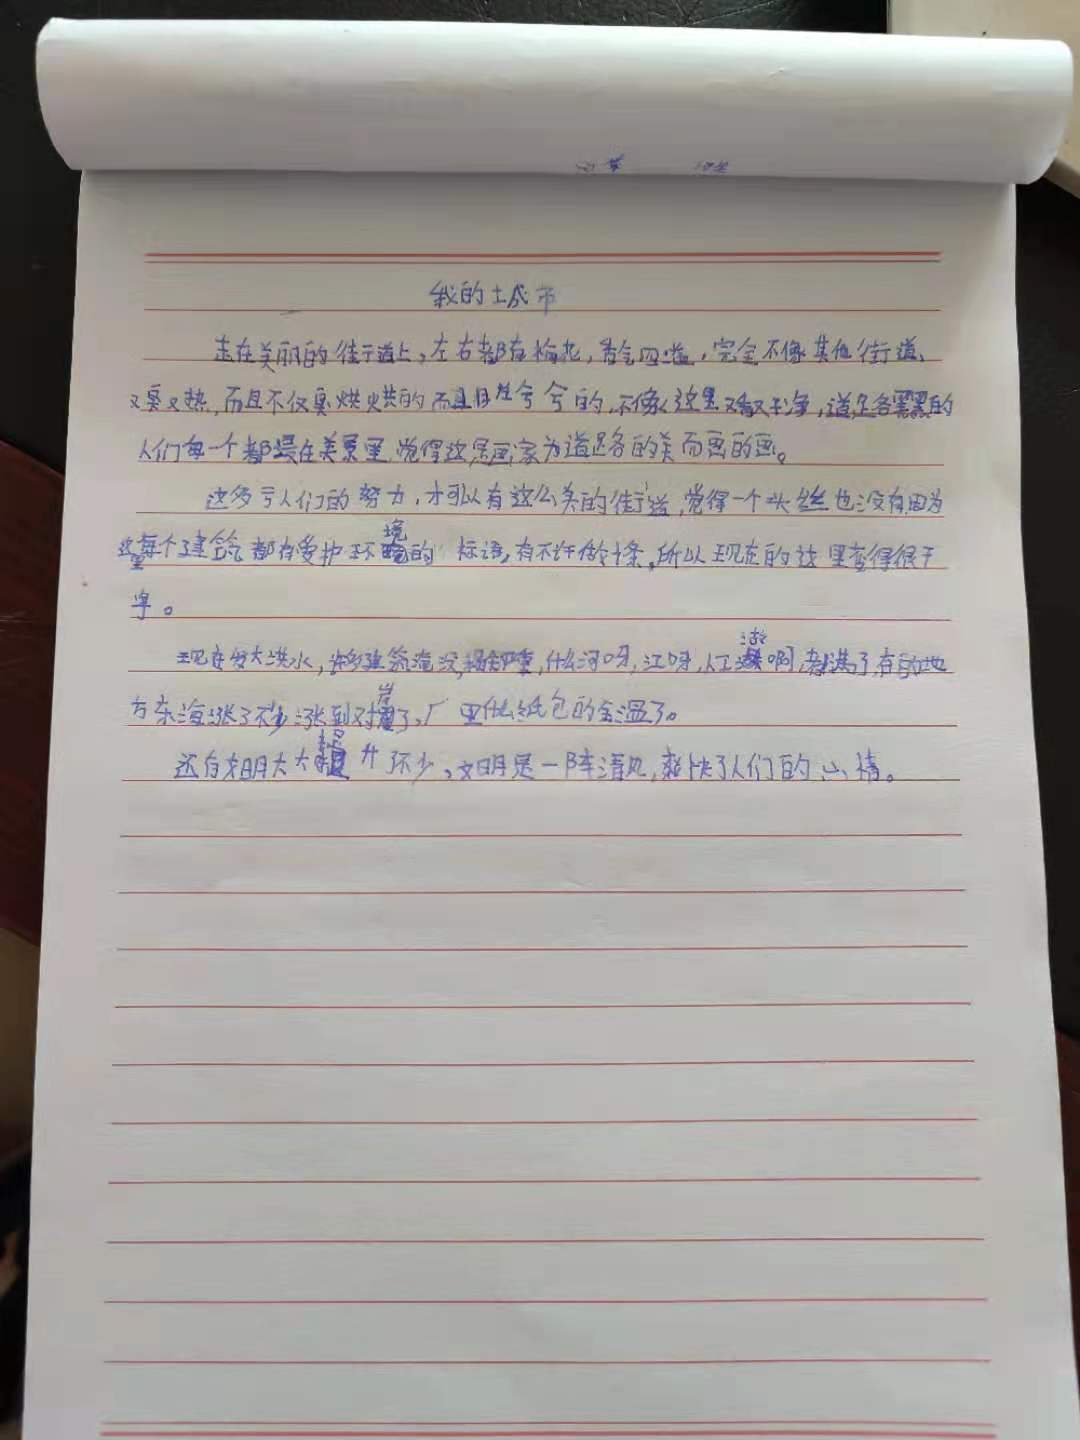 我的城市
走在美丽的街道上,左右都有梅花,香气四溢,完全不像其他街道,
又臭又热,而且不仅臭烘烘的而且脏兮兮的,不像这里又香又干净,道路的
人们每一个都是在美景里,觉得这是画家为道路的美而画的画。
这多亏人们的努力,才可以有这么美的街道,觉得一个头丝也没有,因为
这里每个建筑都有爱护环境的标语,有不许做十条,所以现在的这里变得很干
净。
现在发大洪水,许多建筑淹没,损失严重,什么河呀,江呀,人工湖啊,都满了,有的地
方东海涨了不少涨到对岸了,厂里什么纸包的全湿了。
还有文明大大提升了不少,文明是一阵清风,爽快了人们的心情。